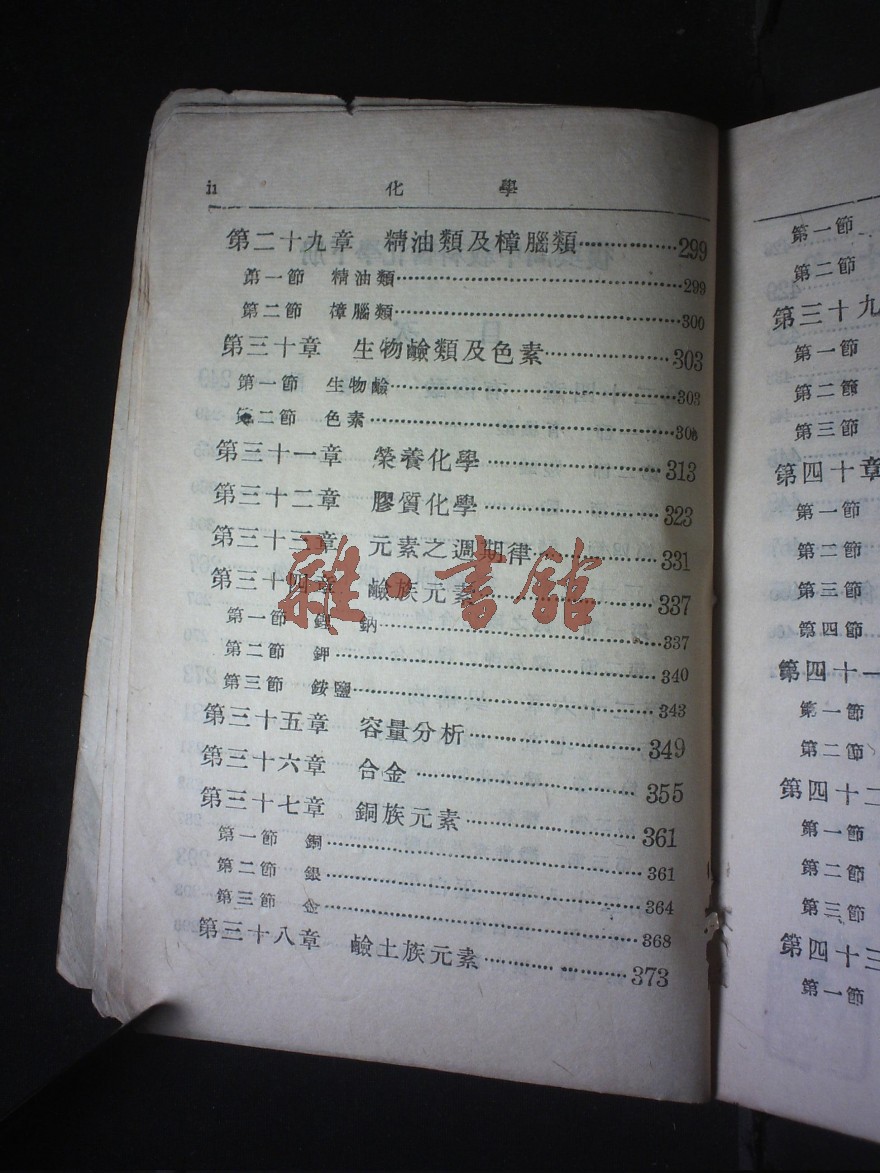 ii 化 學
第二十九章 精油類及樟腦類……………299
第一節 精油類……………299
第二節 樟腦類……………300
第三十章 生物鹼類及色素……………303
第一節 生物鹼……………303
第二節 色素……………306
第三十一章 榮養化學……………313
第三十二章 膠質化學……………323
第三十三章 元素之週期律……………331
第三十四章 鹼族元素……………337
第一節 鋰 鈉……………337
第二節 鉀……………340
第三節 銨鹽……………343
第三十五章 容量分析……………349
第三十六章 合金……………355
第三十七章 銅族元素……………361
第一節 銅……………361
第二節 銀……………364
第三節 金……………368
第三十八章 鹼土族元素……………373
雜·書館
第一節
第二節
第三十九
第一節
第二節
第三節
第四十章
第一節
第二節
第三節
第四節
第四十一
第一節
第二節
第四十二
第一節
第二節
第三節
第四十三
第一節